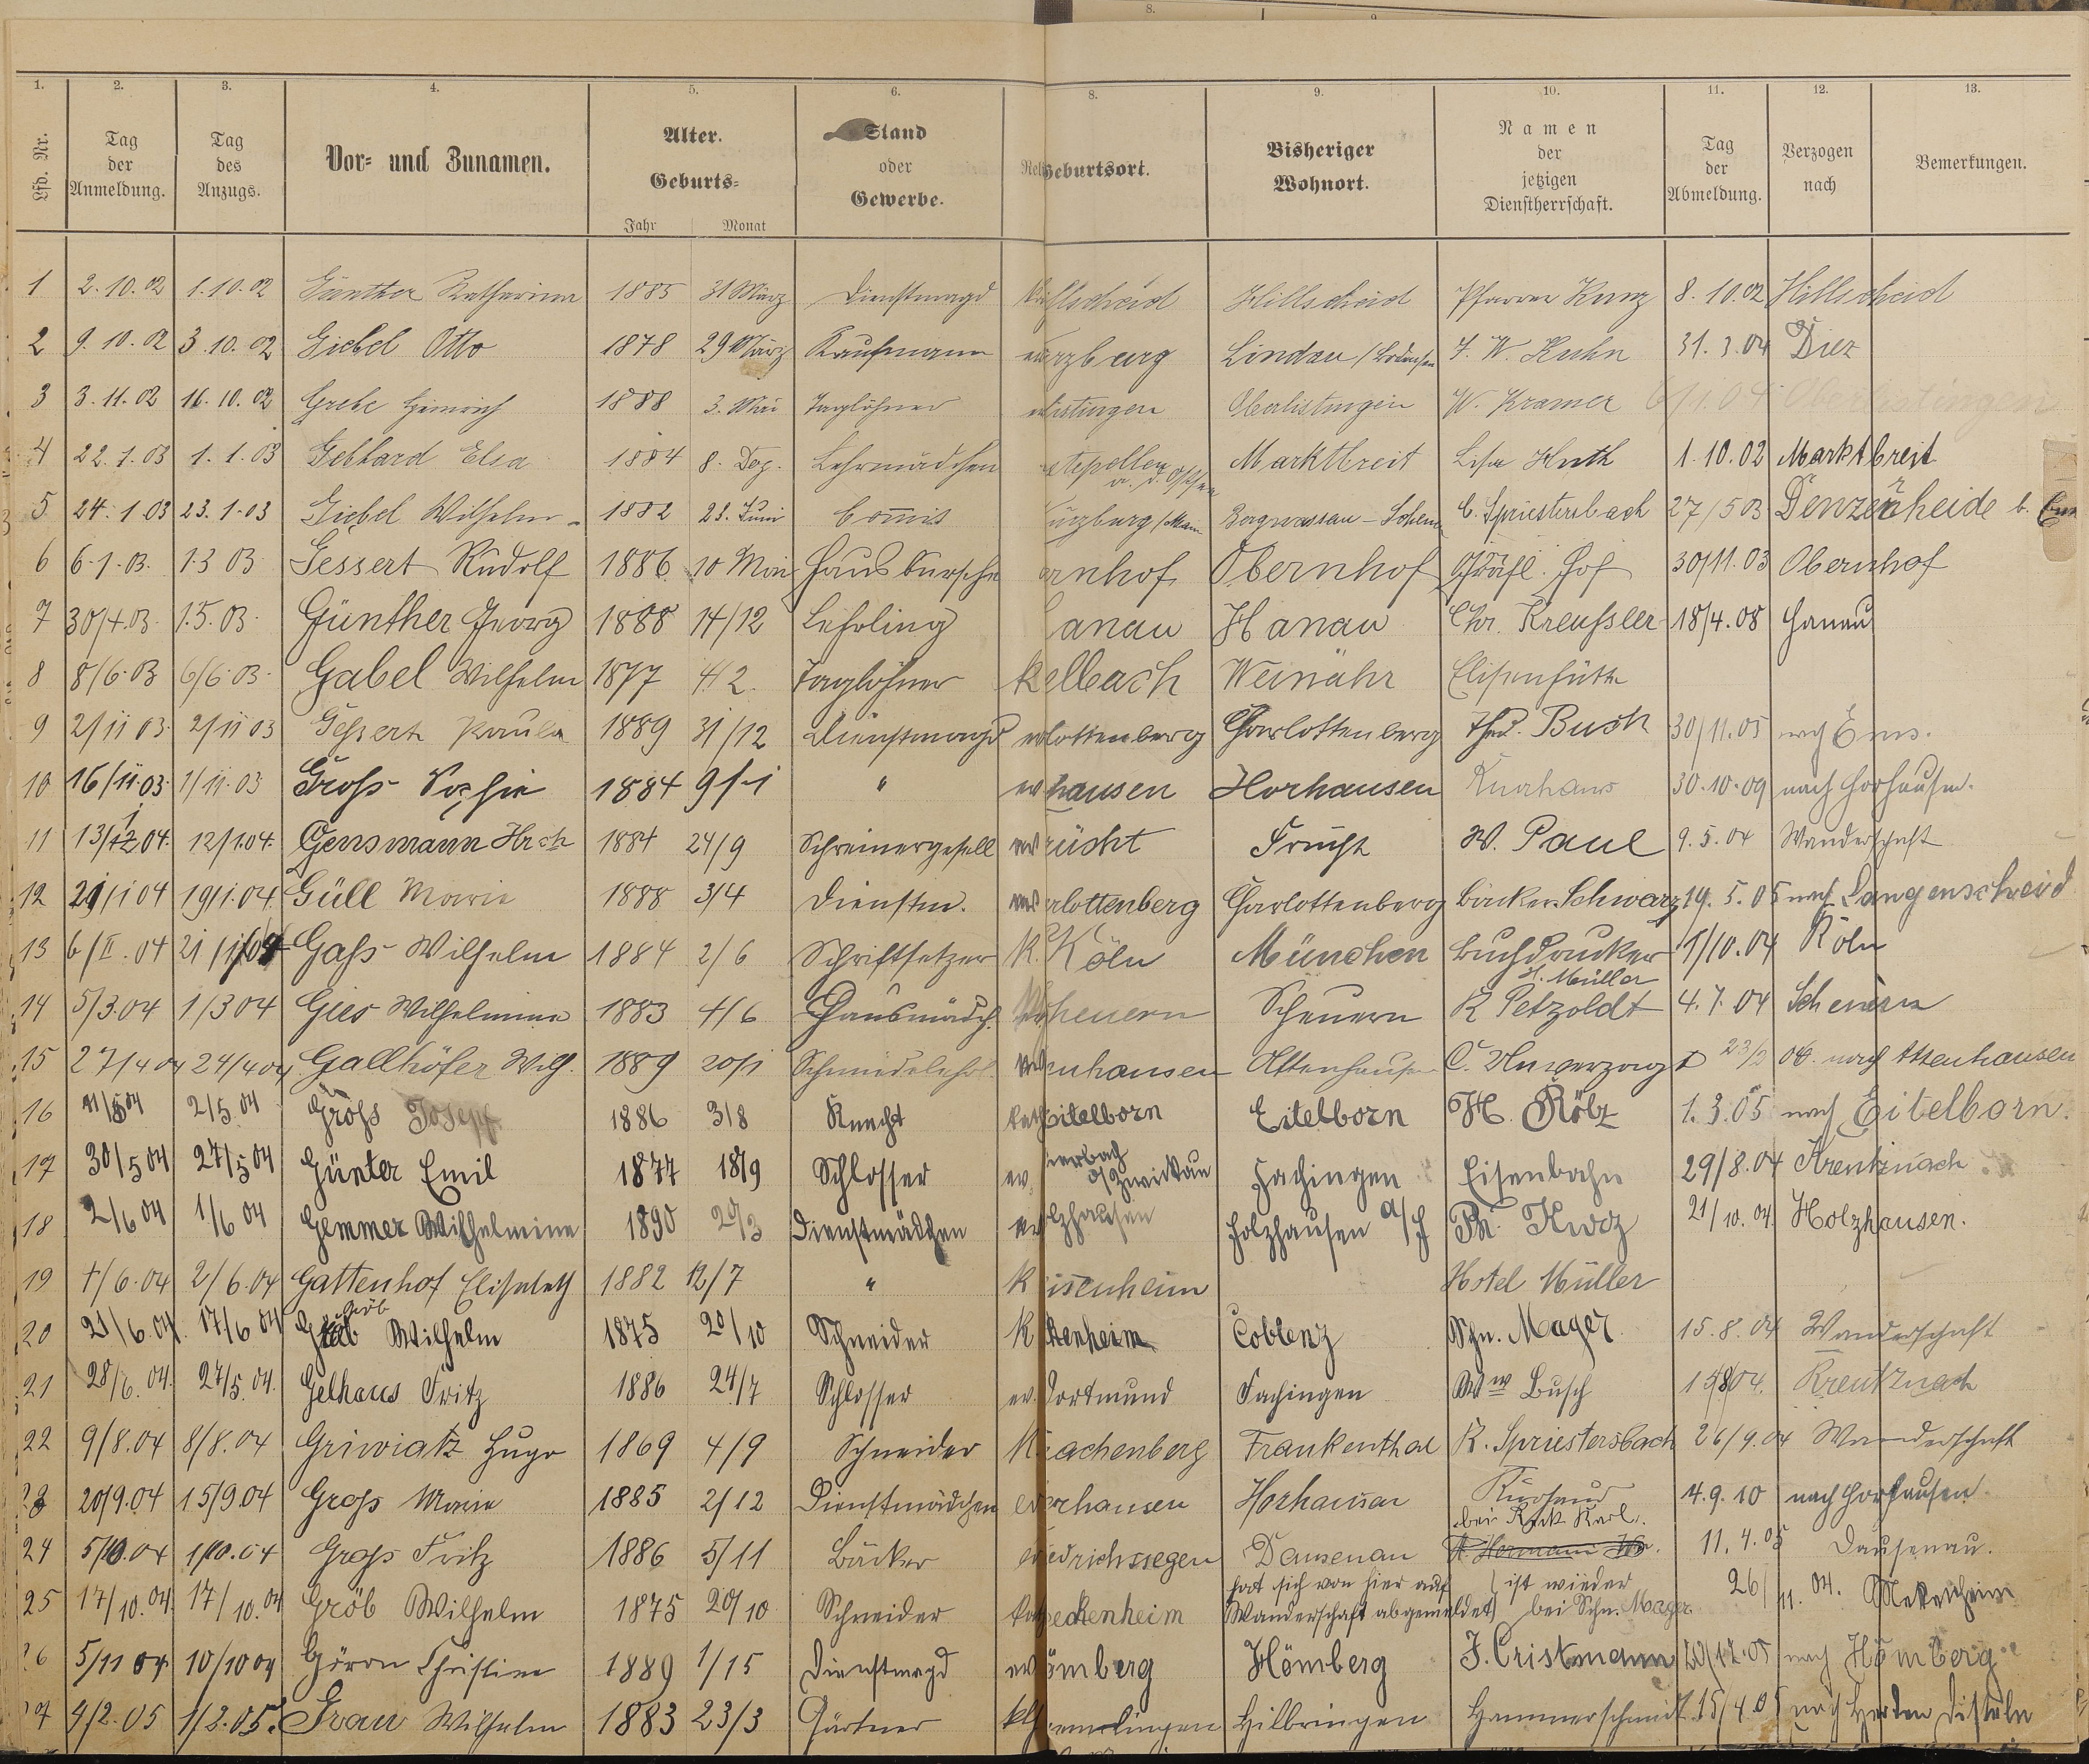 8. 9.
1. 2. 3. 4. 5. 6. 8. 9. 10. 11. 12. 13.
Lfd. Nr. Tag der Anmeldung. Tag des Anzugs. Vor- und Zunamen. Alter. Geburts- Jahr Monat Stand oder Gewerbe. Rel Geburtsort. Bisheriger Wohnort. Namen der jetzigen Dienstherrschaft. Tag der Abmeldung. Verzogen nach Bemerkungen.
1 2.10.02 1.10.02 Günther Katharina 1885 31 März Dienstmagd llscheid Hillscheid Pfarrer Kunz 8.10.02 Hillscheid
2 9.10.02 3.10.02 Giebel Otto 1878 29 März Kaufmann rzburg Lindau / Bodensee F. W. Kuhn 31.3.04 Diez
3 3.11.02 16.10.02 Grebe Heinrich 1888 3. Mai Taglöhner listingen Oberlistingen W. Kramer 6/1.04 Oberlistingen
4 22.1.03 1.1.03 Gebhard Elsa 1884 8. Dez. Lehrmädchen a. d. Ostsee Marktbreit Lisa Huth 1.10.02 Marktbreit
5 24.1.03 23.1.03 Giebel Wilhelm 1882 28. Juni Comis zburg / Main Bergnassau-Scheuern C. Spriestersbach 27/5 03 Denzerheide b. Ems
6 6.1.03. 1.3 03. Gessert Rudolf 1886 10 Mai Hausbursche rnhof Obernhof Gräfl. Hof 30/11.03 Obernhof
7 30/4.03. 1.5.03. Günther Georg 1888 14/12 Lehrling anau Hanau Chr. Kreußler 18/4.08 Hanau
8 8/6.03 6/6.03. Gabel Wilhelm 1877 4/2. Taglöhner k elbach Weinähr Elisenhütte
9 2/11 03. 2/11 03 Geßert Paula 1889 31/12 Dienstmagd ev lottenberg Charlottenberg Thed. Busch 30/11.05 nch Ems.
10 16/11.03. 1/11.03 Groß Sophie 1884 9/1 " ev hausen Horhausen Kurhaus 30.10.09 nach Horhausen.
11 13/1 12 04. 12/1.04. Gensmann Hrch 1884 24/9 Schreinergesell ev rücht Frücht W. Paul 9.5.04 Wanderschaft
12 21/1 04 19/1.04. Güll Marie 1888 3/4 Dienstm. ev rlottenberg Charlottenberg Bäcker Schwarz 19.5.05 nach Langenscheid
13 6/II.04 21/1/04 Gaß Wilhelm 1884 2/6 Schriftsetzer K. Köln München Buchdrucker H. Müller 1/10.04 Köln
14 5/3.04 1/3 04 Gies Wilhelmine 1883 4/6 Hausmädch. heuern Scheuern K Petzoldt 4.7.04 Scheuern
15 27/4 04 24/4 04 Gallhöfer Wilh. 1889 20/1 Schmiedelehrl. nhausen Attenhausen C. Unverzagt 23/2 06. nach Attenhausen
16 11/5 04 2/5.04 Groß Josepf 1886 3/8 Knecht kath Eitelborn Eitelborn H. Rölz 1.3.05 nach Eitelborn.
17 30/5 04 27/5 04 Günter Emil 1877 18/9 Schlosser ev. ierbach b/Zwickau Fachingen Eisenbahn 29/8.04 Kreutznach
18 2/6 04 1/6 04 Gemmer Wilhelmine 1890 20/3 Dienstmädchen ev lzhausen Holzhausen a/H Ph. Kurz 21/10.04. Holzhausen.
19 7/6.04 2/6.04 Gattenhof Elisabeth 1882 12/7 " K isenheim Hotel Müller
20 21/6.04. 17/6 04 Gröb Wilhelm 1875 20/10 Schneider K kenheim Coblenz Schn. Mager 15.8.04 Wanderschaft
21 28/6.04. 27/5.04. Gelhaus Fritz 1886 24/7 Schlosser ev. Dortmund Fachingen Ww Busch 15/8 04. Kreutznach
22 9/8.04 8/8.04 Griwiatz Hugo 1869 4/9 Schneider K rachenberg Frankenthal K. Spriestersbach 26/9.04 Wanderschaft
23 20/9.04 15/9 04 Groß Marie 1885 2/12 Dienstmädchen ev rhausen Horhausen Kurhaus 4.9.10 nach Horhausen.
24 5/10.04 1/10.04 Groß Fritz 1886 5/11 Bäcker edrichssegen Dausenau bei Karl. A. Hermann Ww. 11.4.05 Dausenau.
25 17/10.04. 17/10.04 Gröb Wilhelm 1875 20/10 Schneider kath eckenheim hat sich von hier auf Wanderschaft abgemeldet ist wieder bei Schn. Mager 26/11.04. Mekenheim
26 5/11 04 10/10 04 Christine 1889 1/15 Dienstmagd ev ömberg Hömberg J. Cristmann 20/12.05 nach Hömberg
27 4/2.05 1/2.05. Grau Wilhelm 1883 23/3 Gärtner kth emelingen Hilbringen Hammerschmidt 15/4.05 nach